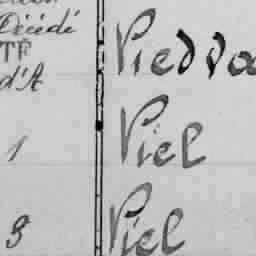 Décédé
TF
d'A
Piedva
1 Piel
3 Piel